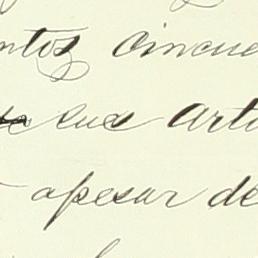 ntos cincue
sus artí
apesar de